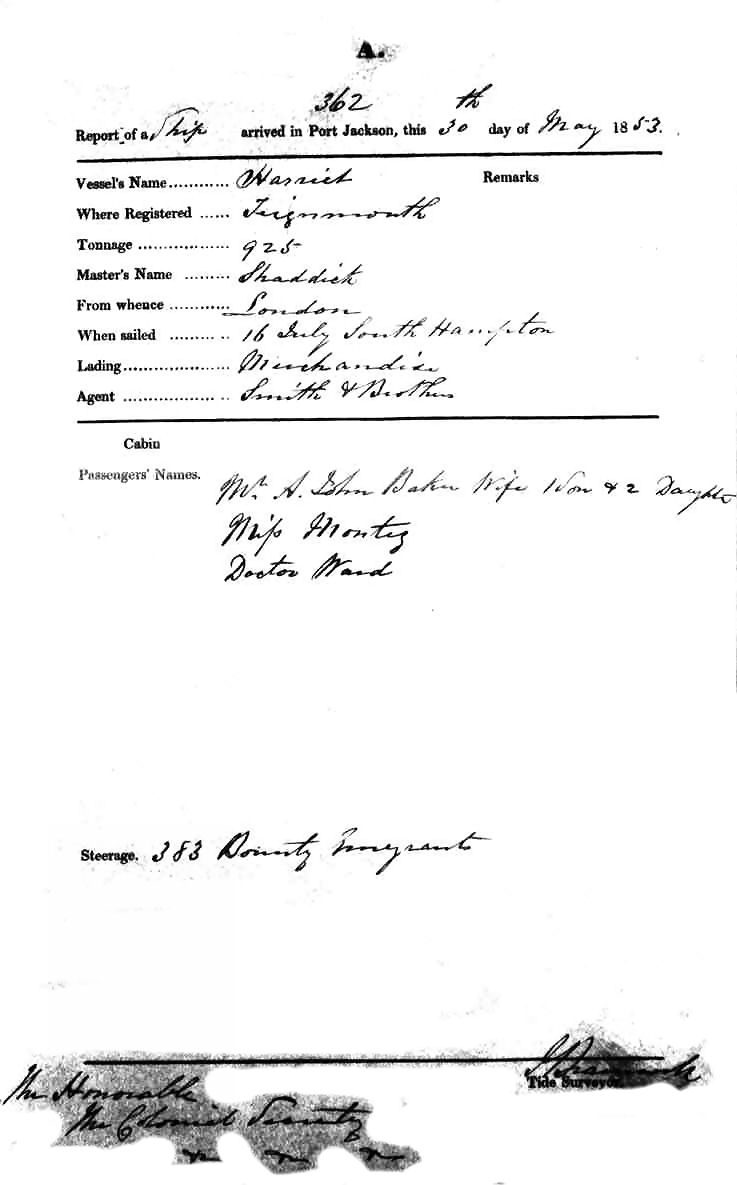 A.
362
Report of a Ship arrived in Port Jackson, this 30th day of May 1853.
Vessel's Name............ Harriet Remarks
Where Registered ...... Teignmouth
Tonnage .................. 925
Master's Name ......... Shaddick
From whence ............ London
When sailed ........... 16 July South Hampton
Lading..................... Merchandise
Agent .................... Smith & Brothers
Cabin
Passengers' Names.
Mr. A. John Baker Wife 1 Son & 2 Daughts
Miss Montez
Doctor Ward
Steerage. 383 Bounty Emegrants
Tide Surveyor
The Honorable
The Colonial Secretary